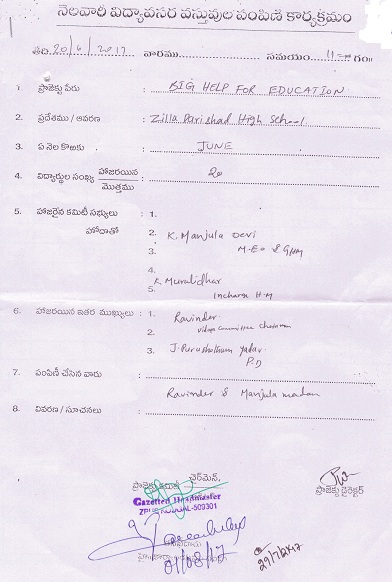 నెలవారీ విద్యావసర వస్తువుల పంపిణి కార్యక్రమం
తేది 20/6/2017 వారము సమయం 11-00 గం॥
1. ప్రాజెక్టు పేరు : BIG HELP FOR EDUCATION
2. ప్రదేశము / ఆవరణ : Zilla Parishad High School
3. ఏ నెల కొఱకు : JUNE
4. విద్యార్థుల సంఖ్య హాజరయిన : 20
మొత్తము
5. హాజరైన కమిటీ సభ్యులు : 1.
హోదాతో 2. K. Manjula Devi
3. M-EO & GHM
4.
K Muralidhar
5. Incharge H-M
6. హాజరయిన ఇతర ముఖ్యులు : 1. Ravinder.
2. Village Committee Chairman
3. J. Purushotham Yadav
P.D
7. పంపిణీ చేసిన వారు :
Ravinder & Manjula madam
8. వివరణ / సూచనలు :
ఛైర్మెన్,
ప్రాజెక్టు
ప్రాజెక్టు డైరెక్టర్
Gazetted Headmaster
-503301
01/08/17
29/7/2017